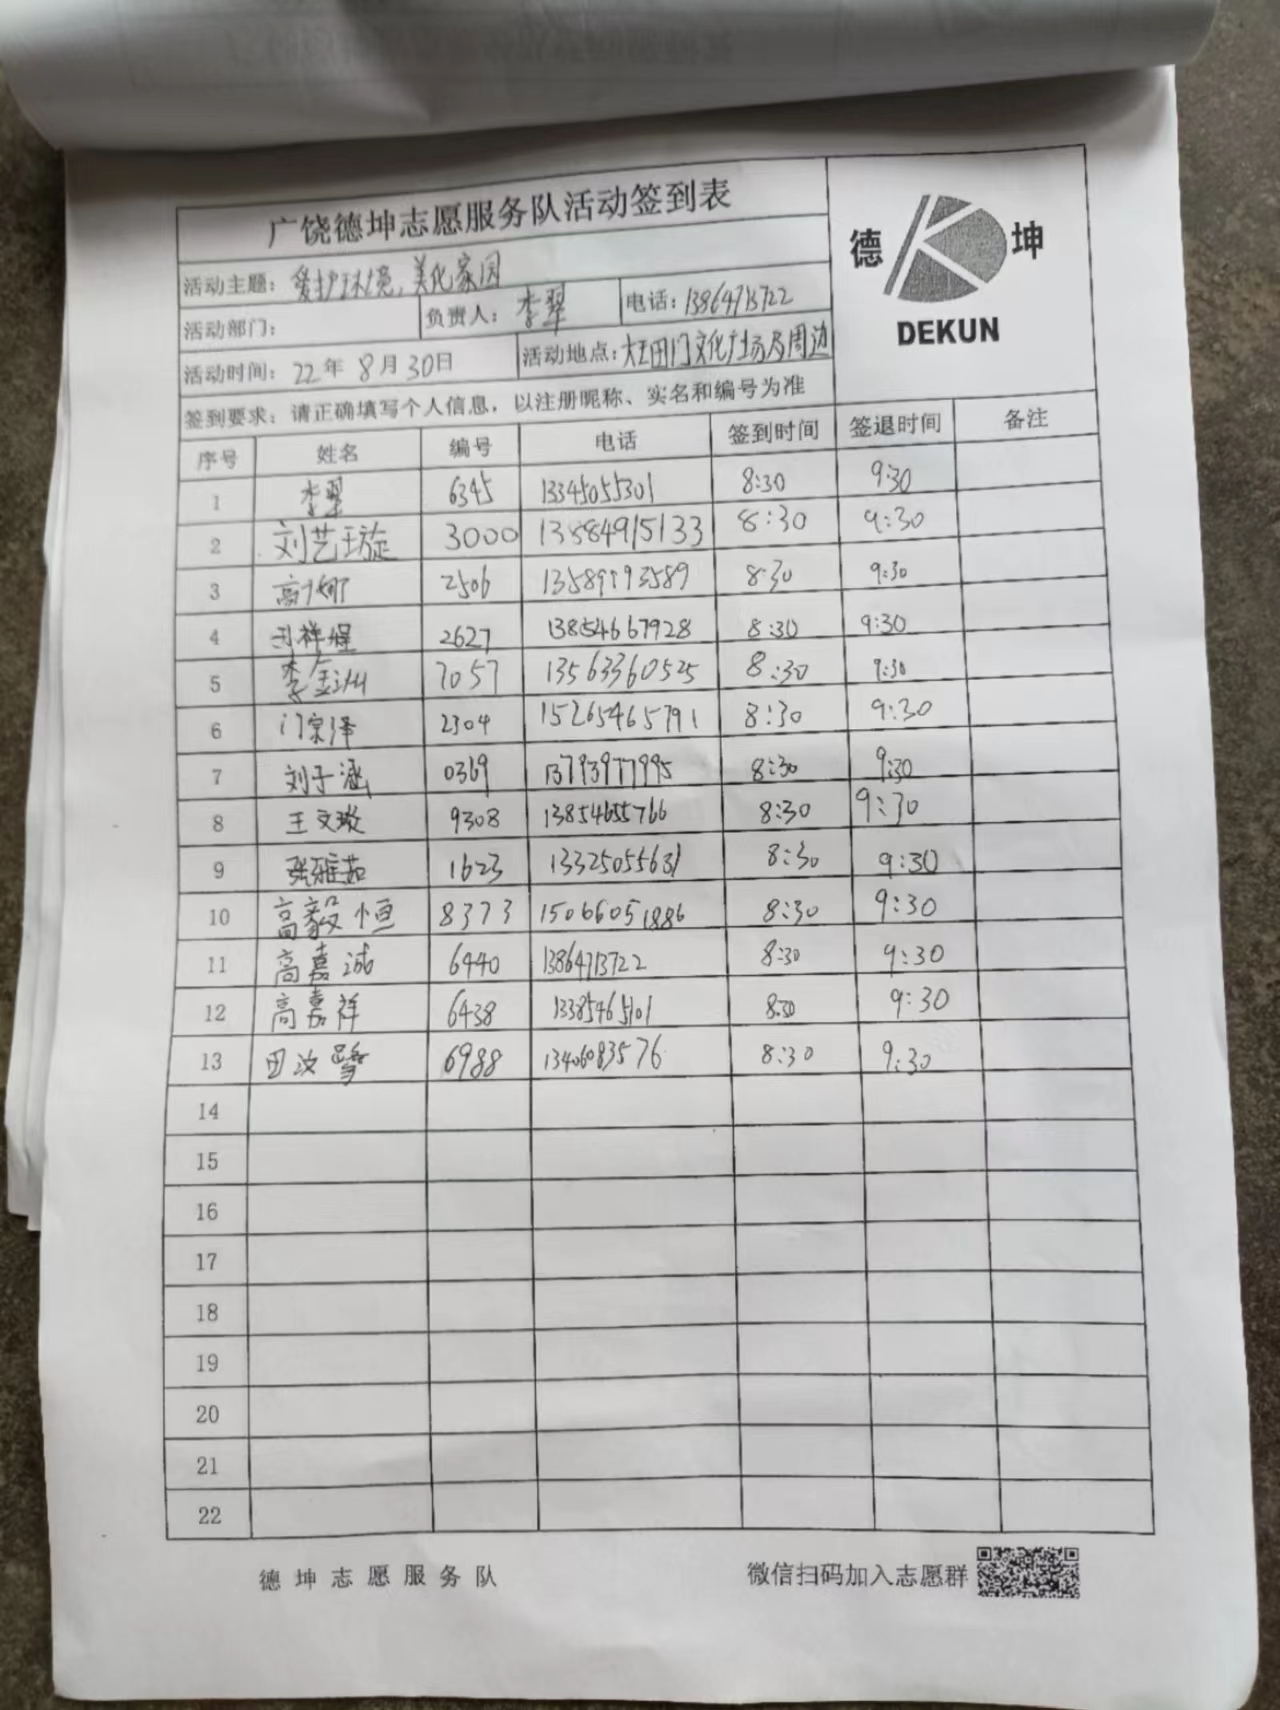 广饶德坤志愿服务队活动签到表
德 坤
DEKUN
活动主题：爱护环境，美化家园
活动部门： 负责人：李翠 电话：13864713722
活动时间：22年8月30日 活动地点：大王田门文化广场及周边
签到要求：请正确填写个人信息，以注册昵称、实名和编号为准
序号 姓名 编号 电话 签到时间 签退时间 备注
1 李翠 6345 13345055301 8:30 9:30
2 刘艺璇 3000 13884915133 8:30 9:30
3 高娜 2506 8:30 9:30
4 2627 13854667928 8:30 9:30
5 7057 13563360525 8:30 9:30
6 门宗泽 2304 15265465791 8:30 9:30
7 刘于涵 0369 13793977995 8:30 9:30
8 王文璇 9308 13854655766 8:30 9:30
9 张雅茹 1623 13325055631 8:30 9:30
10 高毅恒 8373 15066051886 8:30 9:30
11 高嘉诚 6440 13864713722 8:30 9:30
12 高嘉祥 6438 13385465101 8:30 9:30
13 田汝鹭 6988 13406083576 8:30 9:30
14
15
16
17
18
19
20
21
22
德坤志愿服务队 微信扫码加入志愿群